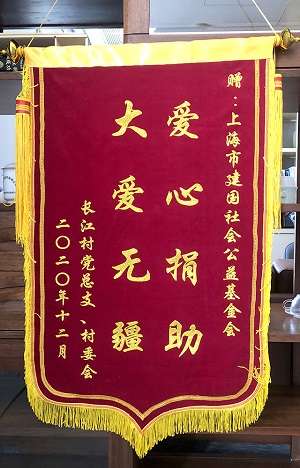 赠：上海市建国社会公益基金会
爱心捐助
大爱无疆
长江村党总支、村委会
二〇二〇年十二月